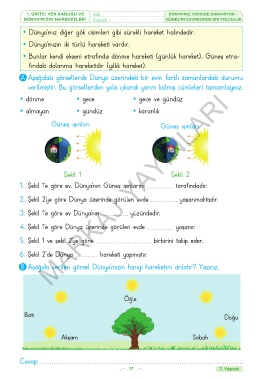 1. ÜNİTE: YER KABUĞU VE
DÜNYA'MIZIN HAREKETLERİ
Adı:
Soyadı:
DÜNYAMIZ YERİNDE DURAMIYOR -
GÜNEŞ'İN ÇEVRESİNDE BİR YOLCULUK
• Dünya'mız diğer gök cisimleri gibi sürekli hareket halindedir.
• Dünya'mızın iki türlü hareketi vardır.
• Bunlar kendi ekseni etrafında dönme hareketi (günlük hareket), Güneş etrafındaki dolanma hareketidir (yıllık hareket).
A Aşağıdaki görsellerde Dünya üzerindeki bir evin farklı zamanlardaki durumu
verilmiştir. Bu görsellerden yola çıkarak yarım kalmış cümleleri tamamlayınız.
• dönme • gece • gece ve gündüz
• almayan • gündüz • karanlık
Güneş ışınları
Güneş ışınları
Şekil 1
Şekil 2
1. Şekil 1'e göre ev, Dünya'nın Güneş ışınlarını .............. tarafındadır.
2. Şekil 2'ye göre Dünya üzerinde görülen evde .............. yaşanmaktadır.
3. Şekil 1'e göre ev Dünya'nın .............. yüzündedir.
4. Şekil 1'e göre Dünya üzerinde görülen evde .............. yaşanır.
5. Şekil 1 ve şekil 2'ye göre .............. birbirini takip eder.
6. Şekil 2'de Dünya .............. hareketi yapmıştır.
B Aşağıda verilen görsel Dünya'mızın hangi hareketini anlatır? Yazınız.
Öğle
Batı
Doğu
Akşam
Sabah
Cevap: ..............
MARKAJ YAYINLARI